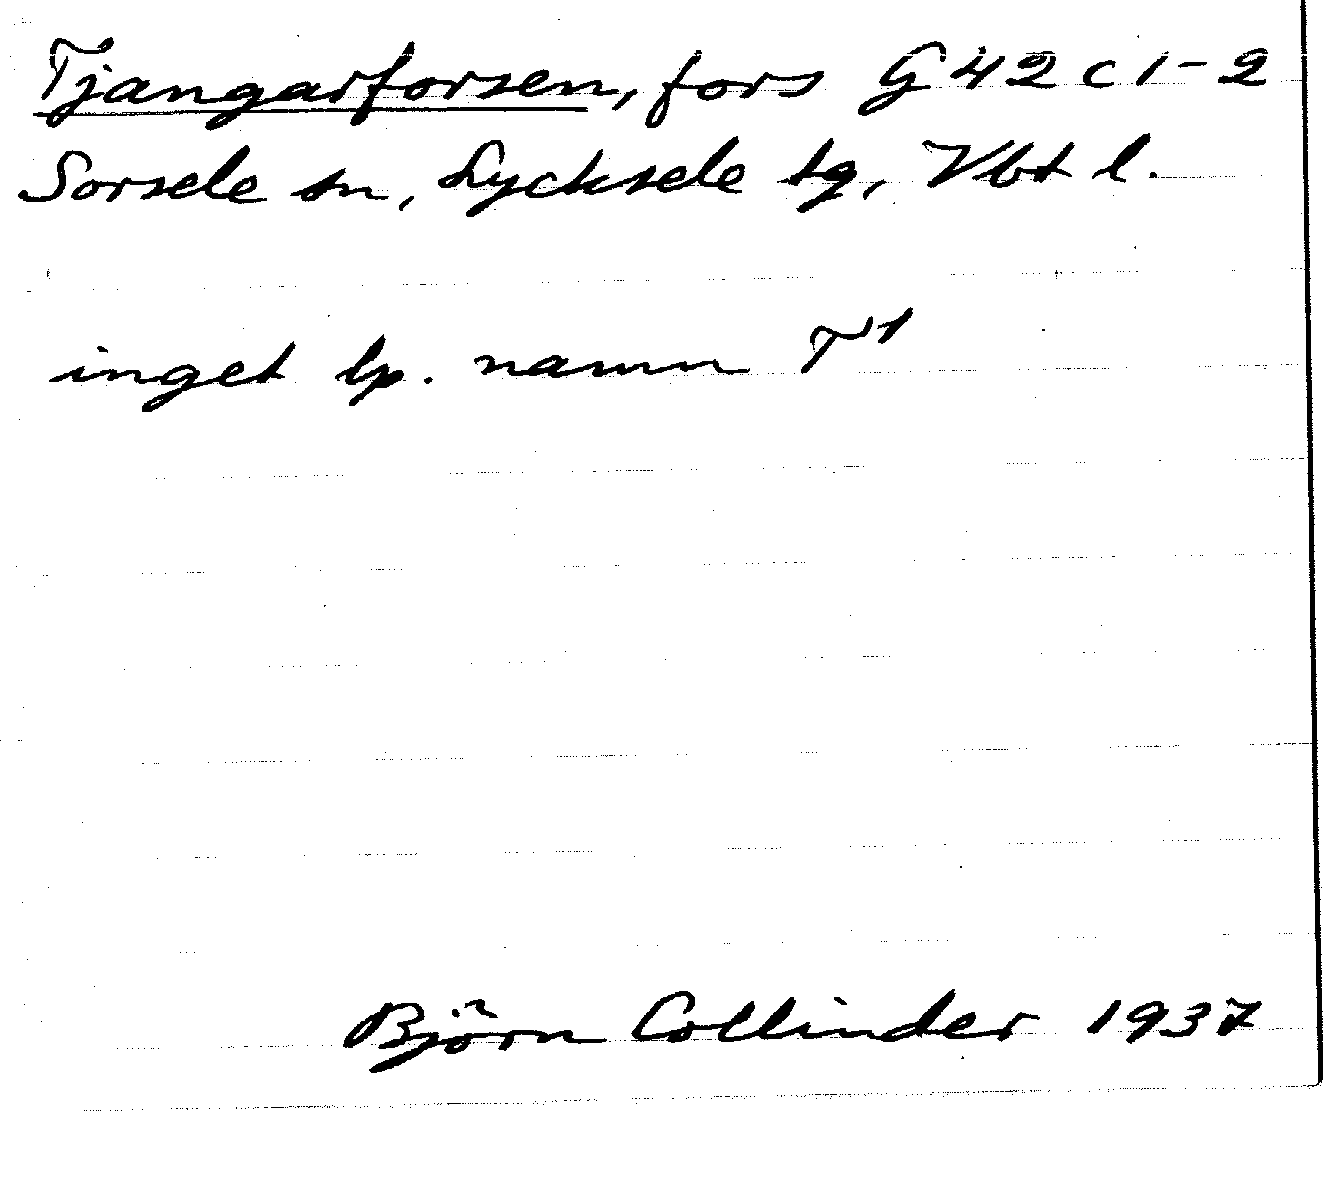 Tjangarforsen, fors G 42 c 1-2
Sorsele sn, Lycksele tg, Vbt l.
inget lp. namn T¹
Björn Collinder 1937